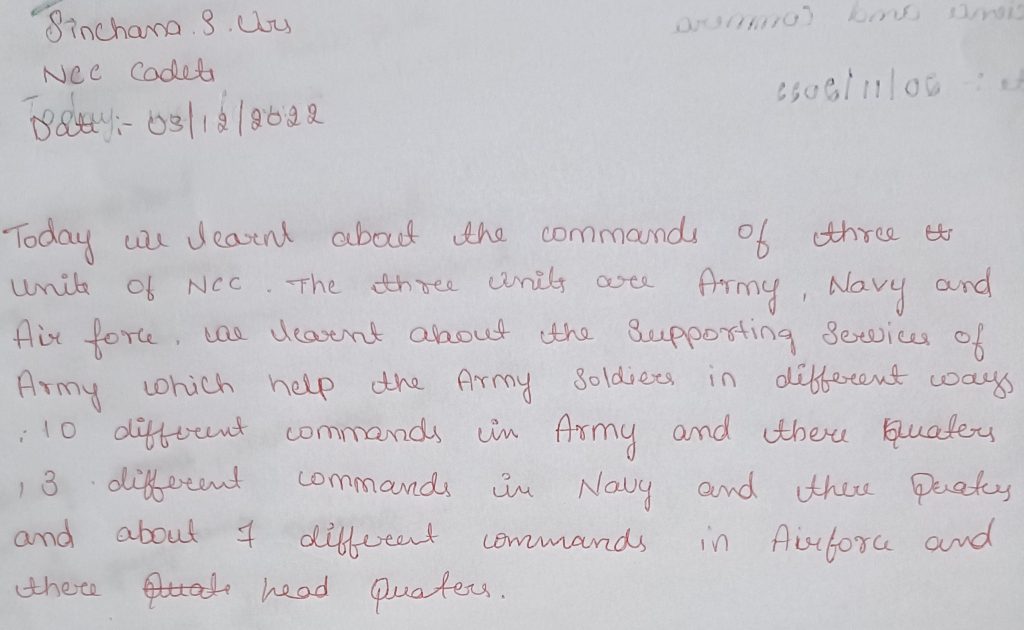 Sinchana. S. Urs
Ncc Cadets
Date:- 03/12/2022
Today we learnt about the commands of three
units of Ncc. The three units are Army, Navy and
Air force, we learnt about the Supporting Services of
Army which help the Army Soldiers in different ways
: 10 different commands in Army and there Quaters
, 3 different commands in Navy and there Quaters
and about 7 different commands in Airforce and
there head Quaters.